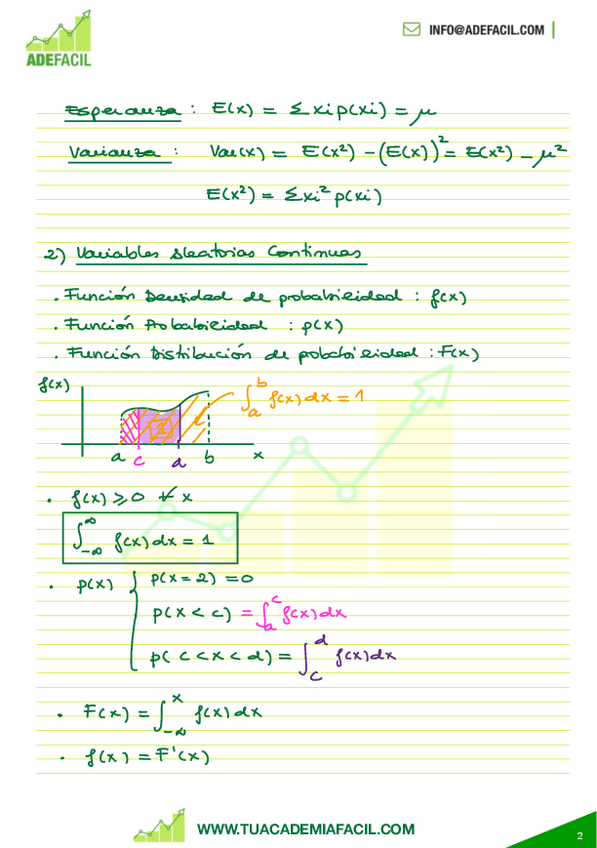 INFO@ADEFACIL.COM
ADEFACIL
Esperanza : E(x) = Σxi p(xi) = μ
Varianza : Var(x) = E(x²) - (E(x))² = E(x²) - μ²
E(x²) = Σxi² p(xi)
2) Variables Aleatorias Continuas
. Función Densidad de probabilidad : f(x)
. Función Probabilidad : p(x)
. Función Distribución de probabilidad : F(x)
f(x)
∫ₐᵇ f(x) dx = 1
1
a c d b x
. f(x) ⩾ 0 ∀ x
∫₋∞^∞ f(x) dx = 1
. p(x) { p(x = 2) = 0
p(x < c) = ∫ₐᶜ f(x) dx
p( c < x < d) = ∫_c^d f(x) dx
. F(x) = ∫₋∞^x f(x) dx
. f(x) = F'(x)
WWW.TUACADEMIAFACIL.COM
2